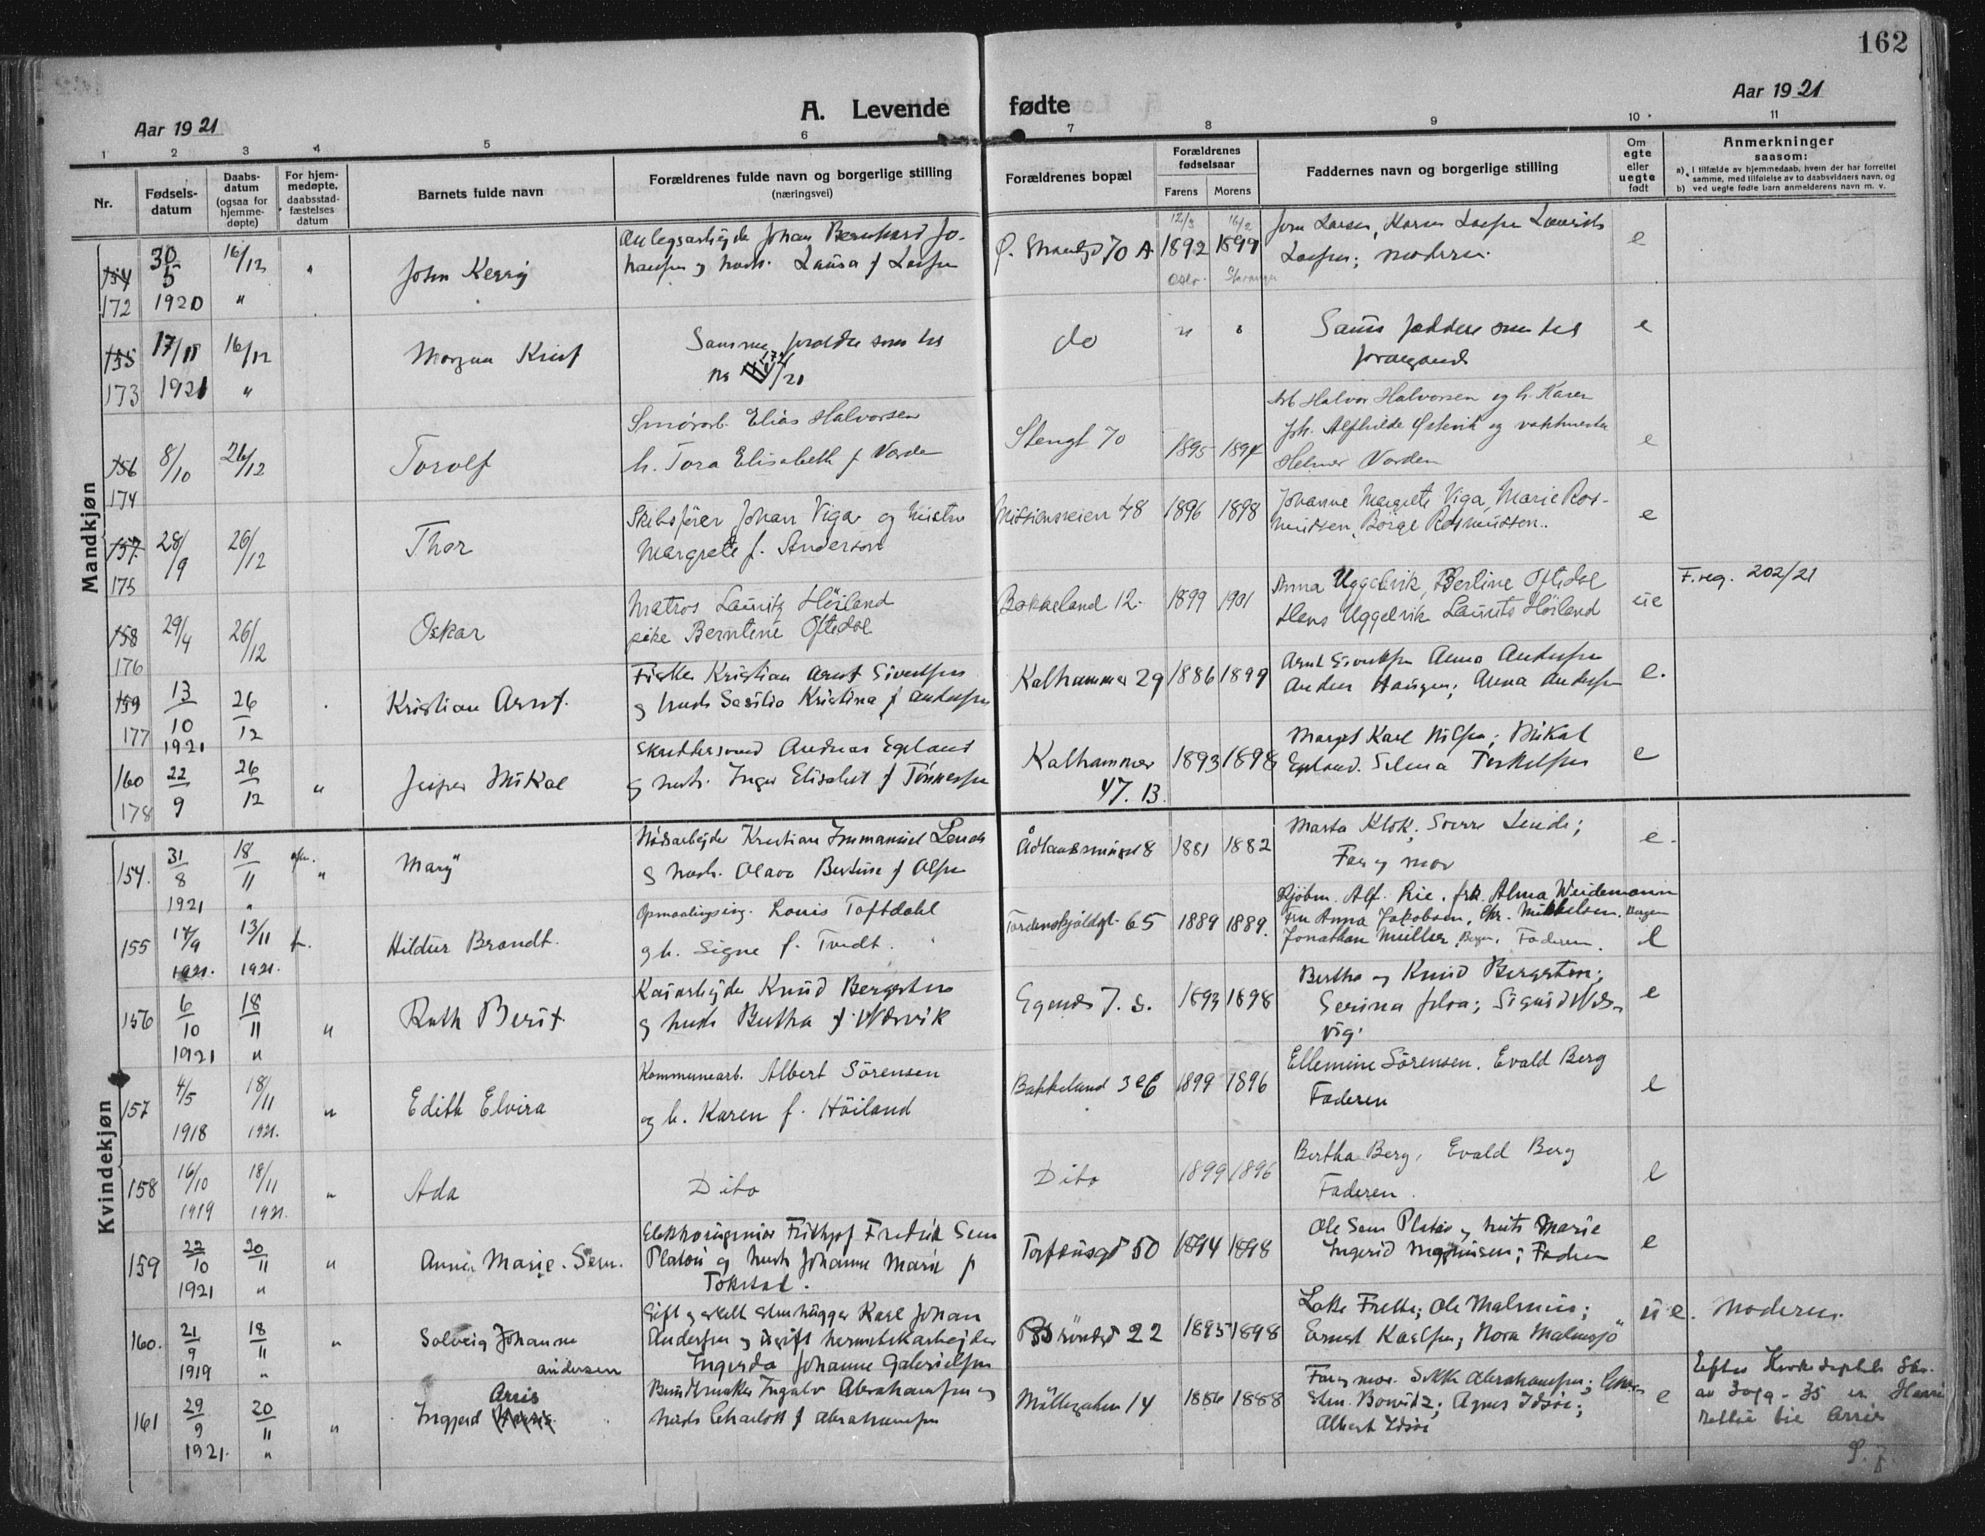 162
Aar 1921
A. Levende fødte
Aar 1921
1 2 3 4 5 6 7 8 9 10 11
Nr.
Fødsels-
datum
Daabs-
datum
(ogsaa for
hjemme-
døpte)
For hjem-
medøpte,
daabsstad-
fæstelses
datum
Barnets fulde navn
Forældrenes fulde navn og borgerlige stilling
(næringsvei)
Forældrenes bopæl
Forældrenes
fødselsaar
Farens Morens
Faddernes navn og borgerlige stilling
Om
egte
eller
uegte
født
Anmerkninger
saasom:
a) I tilfælde av hjemmedaab, hvem der har forrettet
samme, med tilføielse av to daabsvidners navn, og
b) ved uegte fødte barn anmelderens navn m. v.
Mandkjøn
154 172 30/5 1920 16/12 "
John Kerry
Johan Bernhard Jo-
hansen og hust. Laura f Larsen
Ø. Strandgt 70 A
12/3 1892 Oslo
16/2 1899 Stavanger
Jorn Larsen, Karen Larsen Laurits
Larsen; moderen.
e
155 173 17/11 1921 16/12 "
Morgan Krist
Samme forældre som til
no 172/21
do " "
Samme faddere som til
foregaaende
e
156 174 8/10 26/12
Torolf
Smörarb. Elias Halvorsen
h. Tora Elisabeth f Varden
Stengt 70
1895 1894
Arb Halvor Halvorsen og h. Karen
Joh. Alfhilde Østevik og
Helmer Varden
e
157 175 28/9 26/12
Thor
Skibsfører Johan Viga og hustru
Margrete f. Anderson
Missionsveien 48
1896 1898
Johanne Margrete Viga, Marie Ras-
mussen, Børge Rasmussen.
e
158 176 29/4 26/12
Oskar
Matros Lauritz Höiland
pike Berntine Oftedal
Bakkeland 12.
1899 1901
Anna Uggelvik, Bertine Oftedal
Hans Uggelvik Laurits Höiland
ue
F. reg. 202/21
159 177 13/10 1921 26/12
Kristian Arnt.
Fisker Kristian Arnt Sivertsen
og hust Sesilia Kristina f Andersen
Kalhammer 29
1886 1899
Arnt Sivertsen Anna Andersen
Anders Hansen; Anna Andersen
e.
160 178 22/9 26/12 "
Jesper Mikal
Andreas Egeland
og hust. Inger Elisabet f Tønnessen
Kalhammer
47. 13.
1893 1898
Margot Karl Nilsen; Mikal
Egeland. Selma Terkelsen
e
Kvindekjøn
154. 31/8 1921 18/11 "
Mary
Nödsarbejder Kristian Immanuel Lende
og hust. Olava Bertine f Olsen
8
1881 1882
Marta Klok; Sverre Lende;
Far og mor
e.
155 17/9 1921. 13/11 1921.
Hildur Brandt.
Opmaalingsing. Louis Toftdahl
og h. Signe f. Tvedt.
Tordenskjoldgt. 65
1889 1889.
Kjöbm. Alf. Rie. frk. Alma Weidemann
Fru Anna Jakobsen, Chr. Mikkelsen. Bergen
Jonathan Müller, Bergen. Faderen.
e
156 6/10 1921 18/11 "
Ruth Berit
Kaiarbejder Knud Bergsten
og hust Bertha f Warvik
Egenes 7. S.
1893 1898
Bertha og Knud Bergsten;
Serina
vig.
e
157 4/5 1918 18/11 1921. "
Edith Elvira
Kommunearb. Albert Sörensen
og h. Karen f. Höiland
Bakkeland 36
1899 1896
Ellemine Sörensen. Evald Berg
Faderen
e
158 16/10 1919 18/11 1921. "
Ada
Dito
Dito
1899 1896
Bertha Berg, Evald Berg
Faderen.
e
159 22/10 1921 20/11 " "
Annie Marie. Sem.
Elektroingeniør Frithjof Fredrik Sem
Platou og hust Johanne Marie f
Tokstad.
Torfæusgt 50
1894 1898
Ole Sem Platou og hust Marie
Ingerid Magnusen; Faderen
e
160. 21/9 1919 18/11 " "
Solveig Johanne
Andersen
Gift og skilt stenhugger Karl Johan
Andersen og ugift hermetikarbejder
Ingerda Johanne Gabrielsen
22
1895 1898
Lotte Frette; Ole Malmin;
Ernst Karlsen; Nora Malmsjö
ue.
Moderen.
161 29/9 1921. 20/11 " "
Arris
Ingjerd
Bundtmaker Ingolv Abrahamsen og
hust Charlott f Abrahamsen
Möllegaten 14
1886 1888
Far og mor. Abrahamsen;
Agnes Idsöe;
Albert Idsöe
e
Efter
av 30/9 - 35 er
rettet til Arris
S. J.